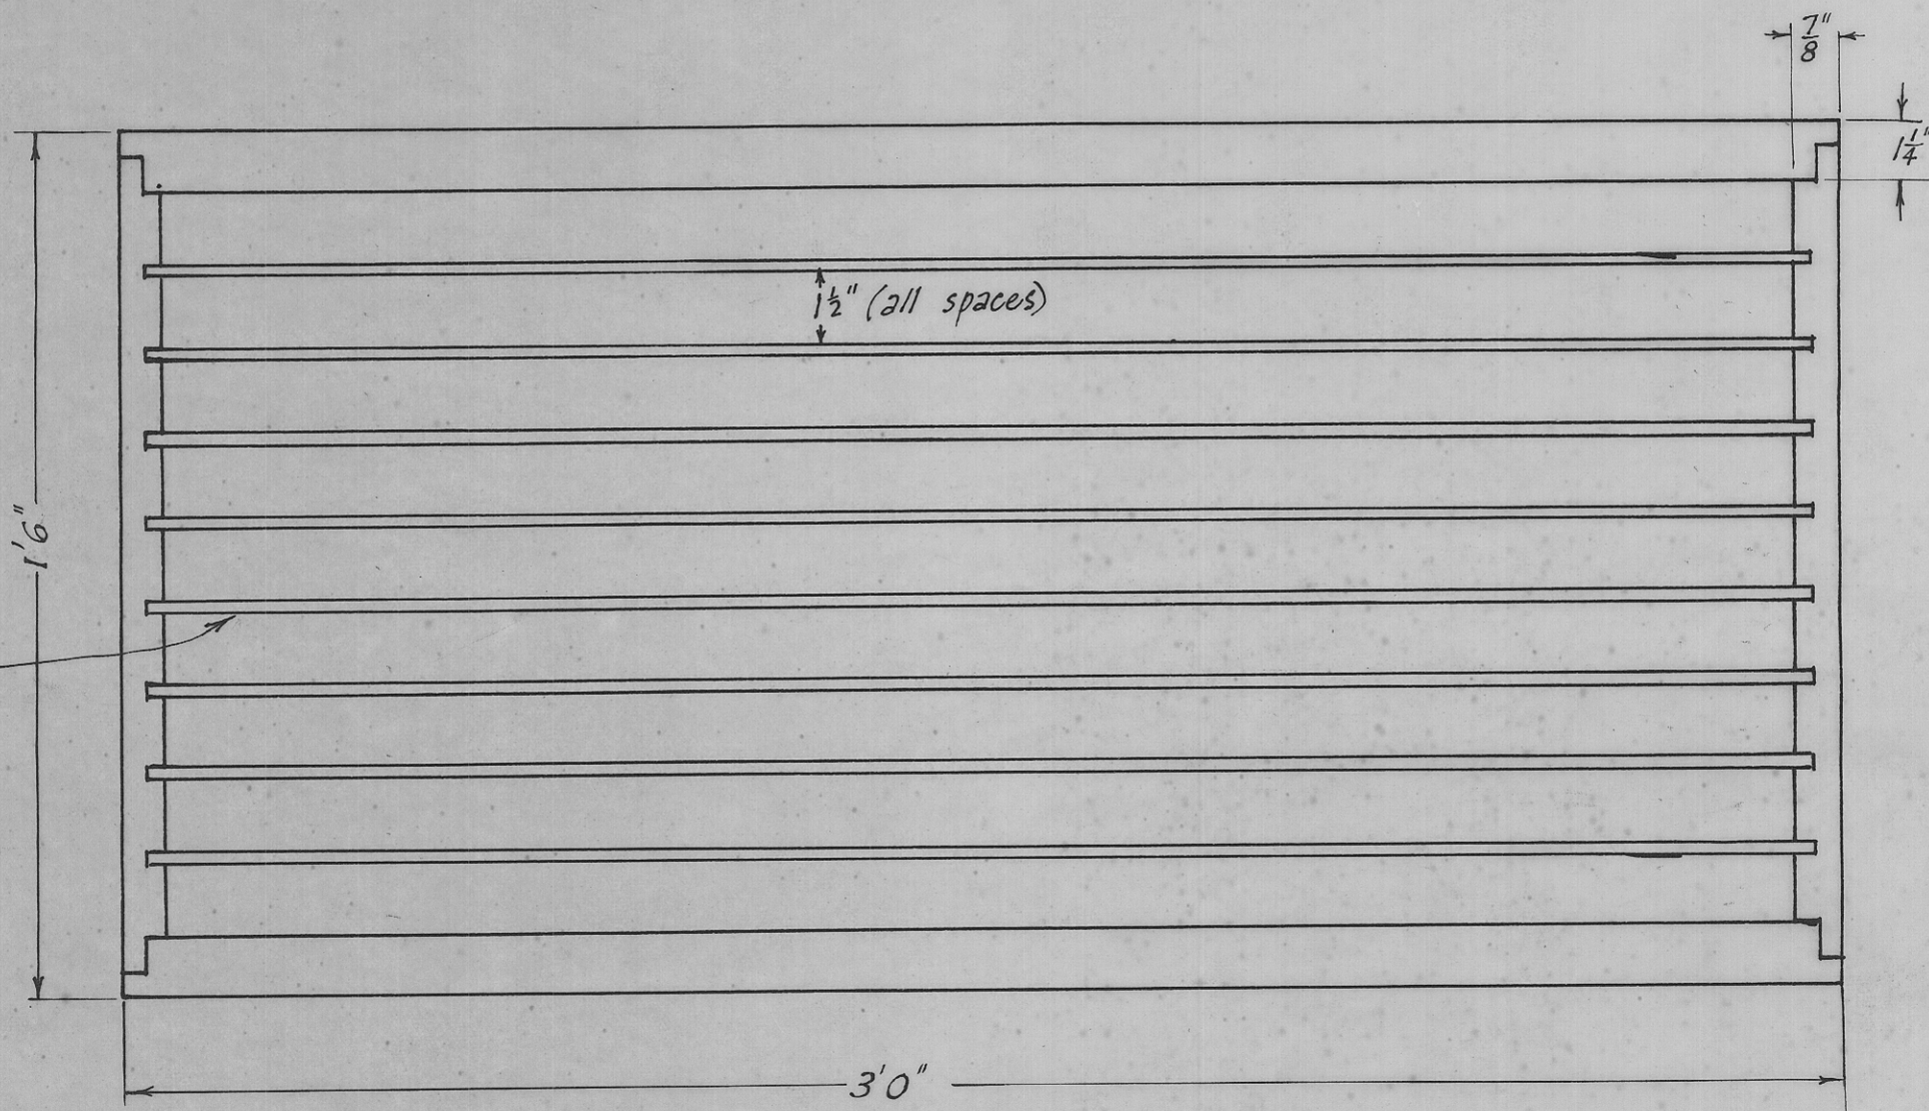 7/8"
1 1/4"
1 1/2" (all spaces)
1'6"
3'0"